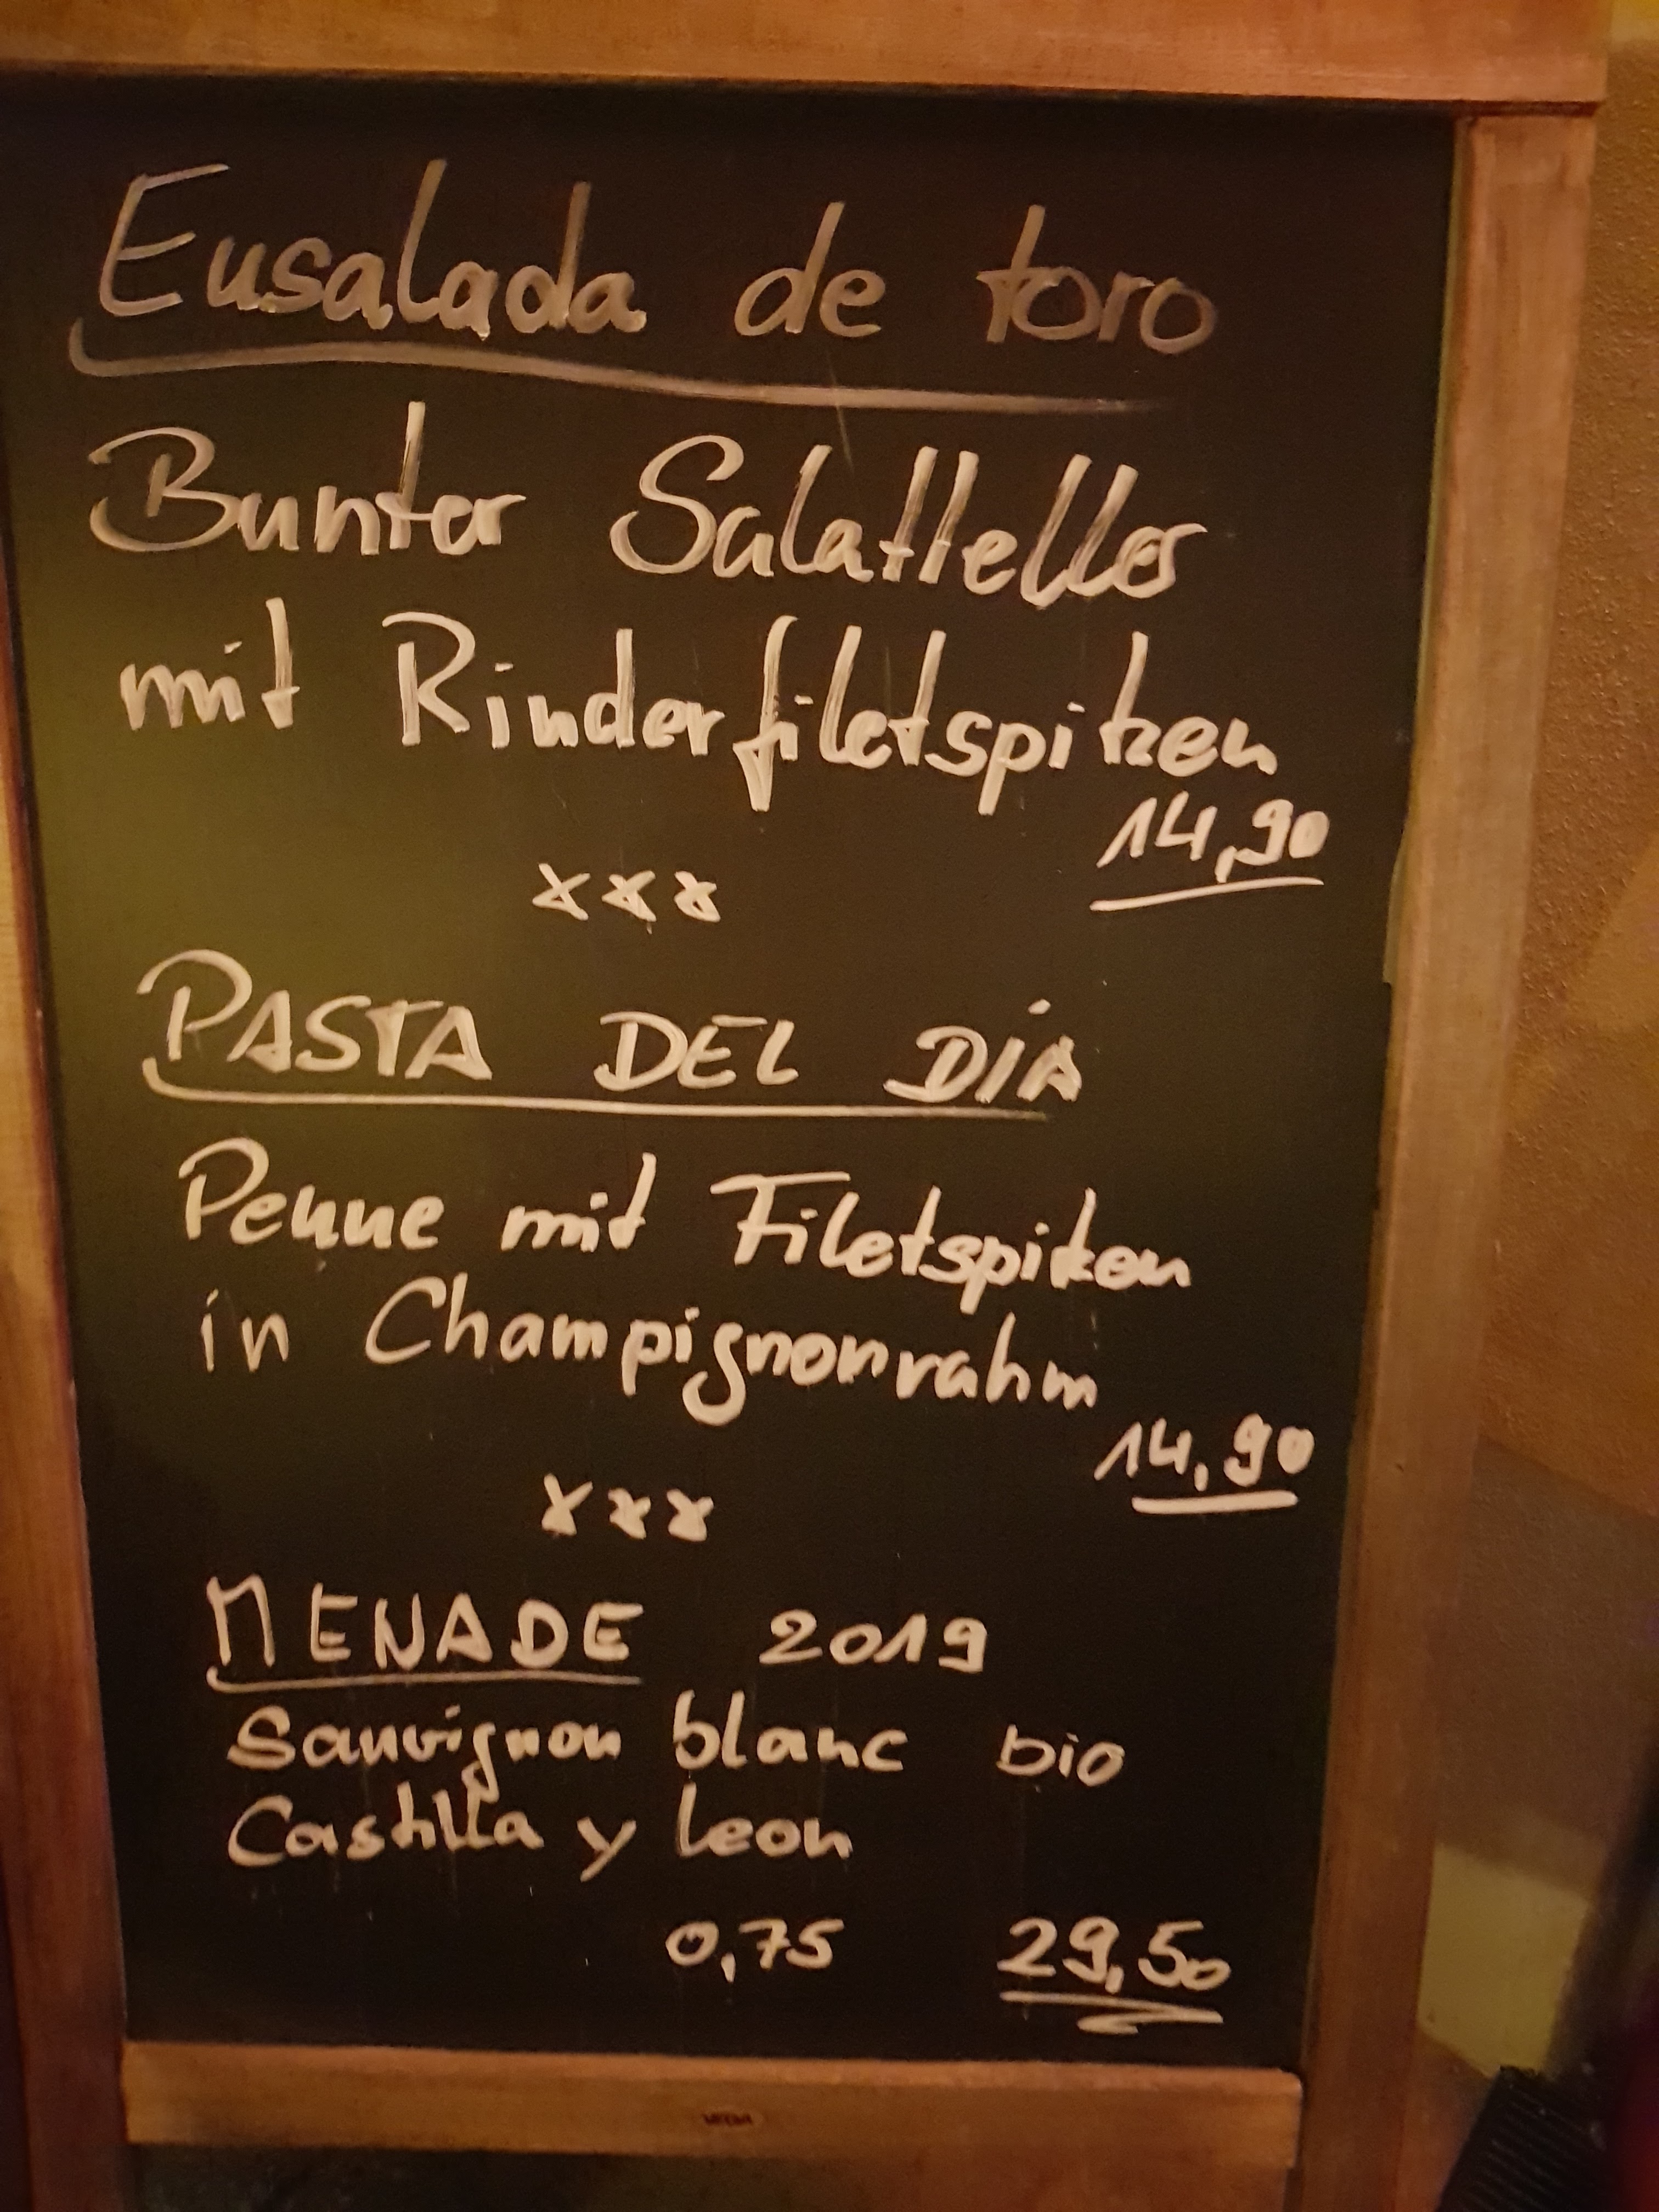 Ensalada de toro
Bunter Salatteller
mit Rinderfiletspitzen
14,90
xxx
PASTA DEL DÍA
Penne mit Filetspitzen
in Champignonrahm
14,90
xxx
MENADE 2019
Sauvignon blanc bio
Castilla y leon
0,75 29,50